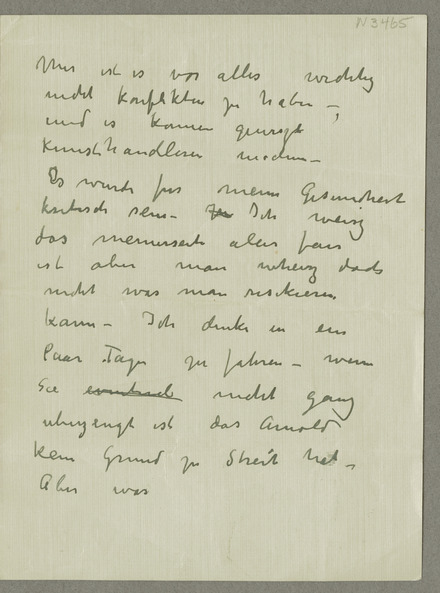 N3465
Mir ist es vor alles wichtig
nicht Konflikten zu haben –,
und es können
Kunsthandleren machen –
Es wurde fur meine Gesundheit
kritisch sein – Ich weisz
das meinerseits alles fair
ist aber man weisz
nicht was man riskieren
kann – Ich denke in ein
Paar Tage zu fahren – wenn
Sie nicht ganz
uberzeugt ist das Arnold
kein Grund zu Streit hat –
Aber was